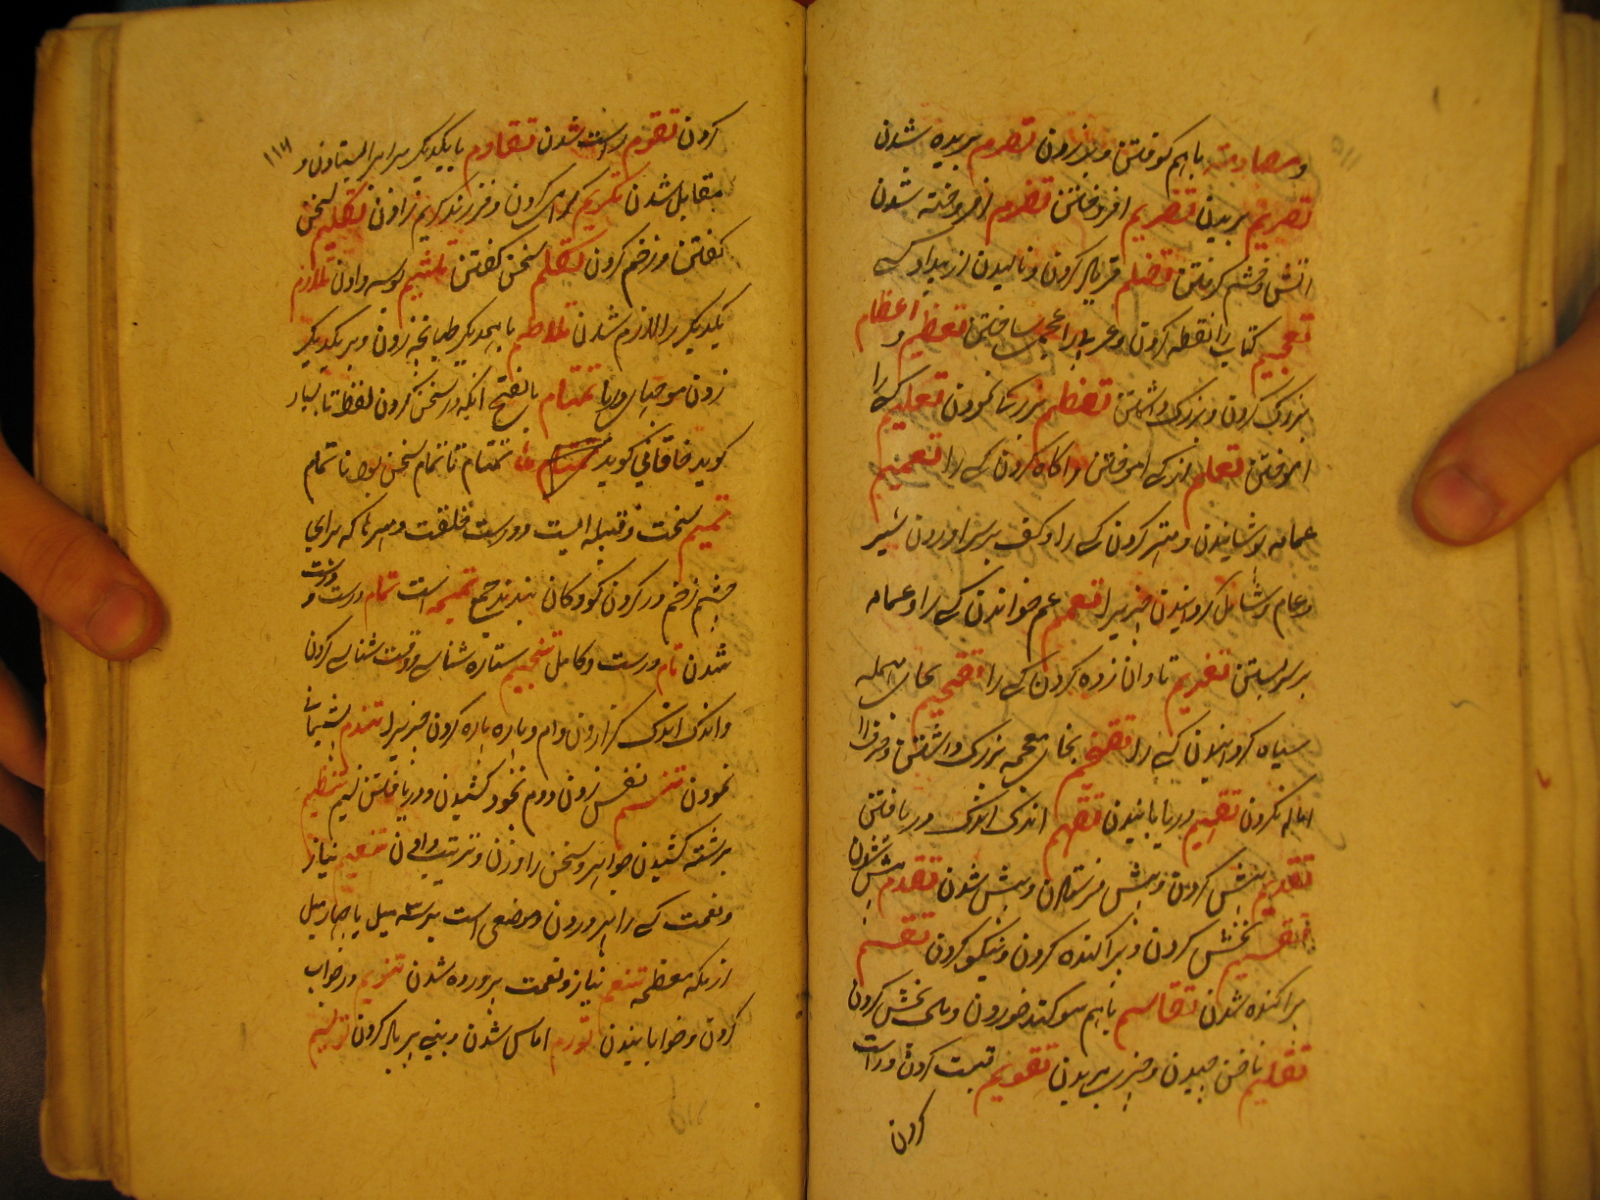 و مصادمة باهم کوفتن و بر زدن تصرم بریده شدن
تصریم بریدن تضریم افروختن تضرم افروخته شدن
اتش و خشم کرفتن تظلم فریاد کردن و نالیدن از بیداد کسے
تعجیم کتاب را نقطه کردن و عربے را عجمے ساختن تعظیم و اعظام
بزرک کردن و بزرک داشتن تعظم بزرکے نمودن تعلیم کسے را
اموختن تعلم از کسے اموختن و اکاه کردن کسے را تعمیم
عمامه پوشانیدن و مهتر کردن کسے را و کف بر سر اوردن شیر
و عام و شامل کردانیدن چیزیرا تعمم عم خواندن کسے را و عمامه
بر سر بستن تغریم تاوان زده کردن کسے را تفحیم بحای مهمله
سیاه کردانیدن کسے را تفخیم بخای معجمه بزرک داشتن و حرف را
اماله نکردن تفهیم دریابانیدن تفهم اندک اندک دریافتن
تقدیم پیش کردن و پیش فرستادن و پیش شدن تقدم پیش شدن
تقسیم بخش کردن و پراکنده کردن و نیکو کردن تقسم
پراکنده شدن تقاسم باهم سوکند خوردن و بخش کردن
تقلیم ناخن چیدن و چیزے بریدن تقویم قیمت کردن و راست
کردن
۱۱۴
کردن تقوم راست شدن تقاوم با یکدیکر برابر ایستادن و
مقابل شدن تکریم کرامے کردن و فرزند کریم زادن تکلیم سخن
کفتن و زخم کردن تکلم سخن کفتن تلثیم بوسه دادن تلازم
یکدیکر را لازم شدن تلاطم با همدیکر طبانچه زدن و بر یکدیکر
زدن موجهای دریا تمتام بالفتح انکه در سخن کردن لفظ تا بسیار
کوید خاقانی کوید تمتام تا تمام سخن بود نا تمام
تمیم سخت و قبیله ایست و درست خلقت و مهرها که برای
چشم زخم در کردن کودکان بندند جمع تمیمه است تمام درست و درست
شدن تام درست و کامل تنجیم ستاره شناسے و وقت شناسے کردن
و اندک اندک کزاردن وام و پاره پاره کردن چیزیرا تندم پشیمانے
نمودن تنسم نفس زدن و دم بخود کشیدن و دریافتن نسیم تنظیم
برشته کشیدن جواهر و سخن را وزن و ترتیب دادن تنعیم بناز
و نعمت کسے را پروردن و موضعی است بر سه میل یا چهار میل
از مکه معظمه تنعم بناز و نعمت پرورده شدن تنویم در خواب
کردن و خوابانیدن تورم اماس شدن و بینے پر باد کردن توسیم